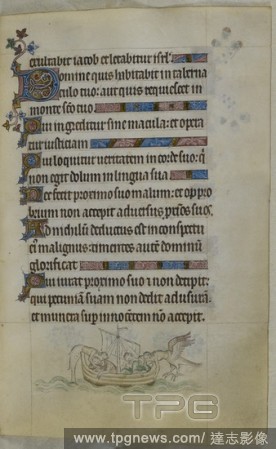 exultabit iacob et letabitur isrl'.
Domine quis habitabit in taberna
culo tuo: aut quis requiescet in
monte sco tuo
Qui ingreditur sine macula: et opera
tur iusticiam
Qui loquitur ueritatem in corde suo: q
non egit dolum in lingua sua
Nec fecit proximo suo malum: et oppro
brium non accepit aduersus primos suos.
Ad nichilum deductus est in conspectu
ei malignus: timentes aute dominum
glorificat
Qui iurat proximo suo et non decipit:
qui pecuniam suam non dedit ad usura.
et munera sup innocentem no accepit.
TPG
www.tpgnews.com/達志影像